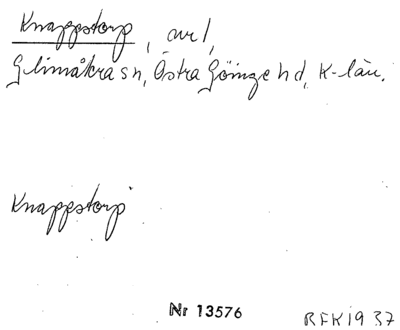 Knappstorp, avl,
Glimåkra sn, Östra Göinge hd, K-län.
Knappstorp
Nr 13576
RFK 1937